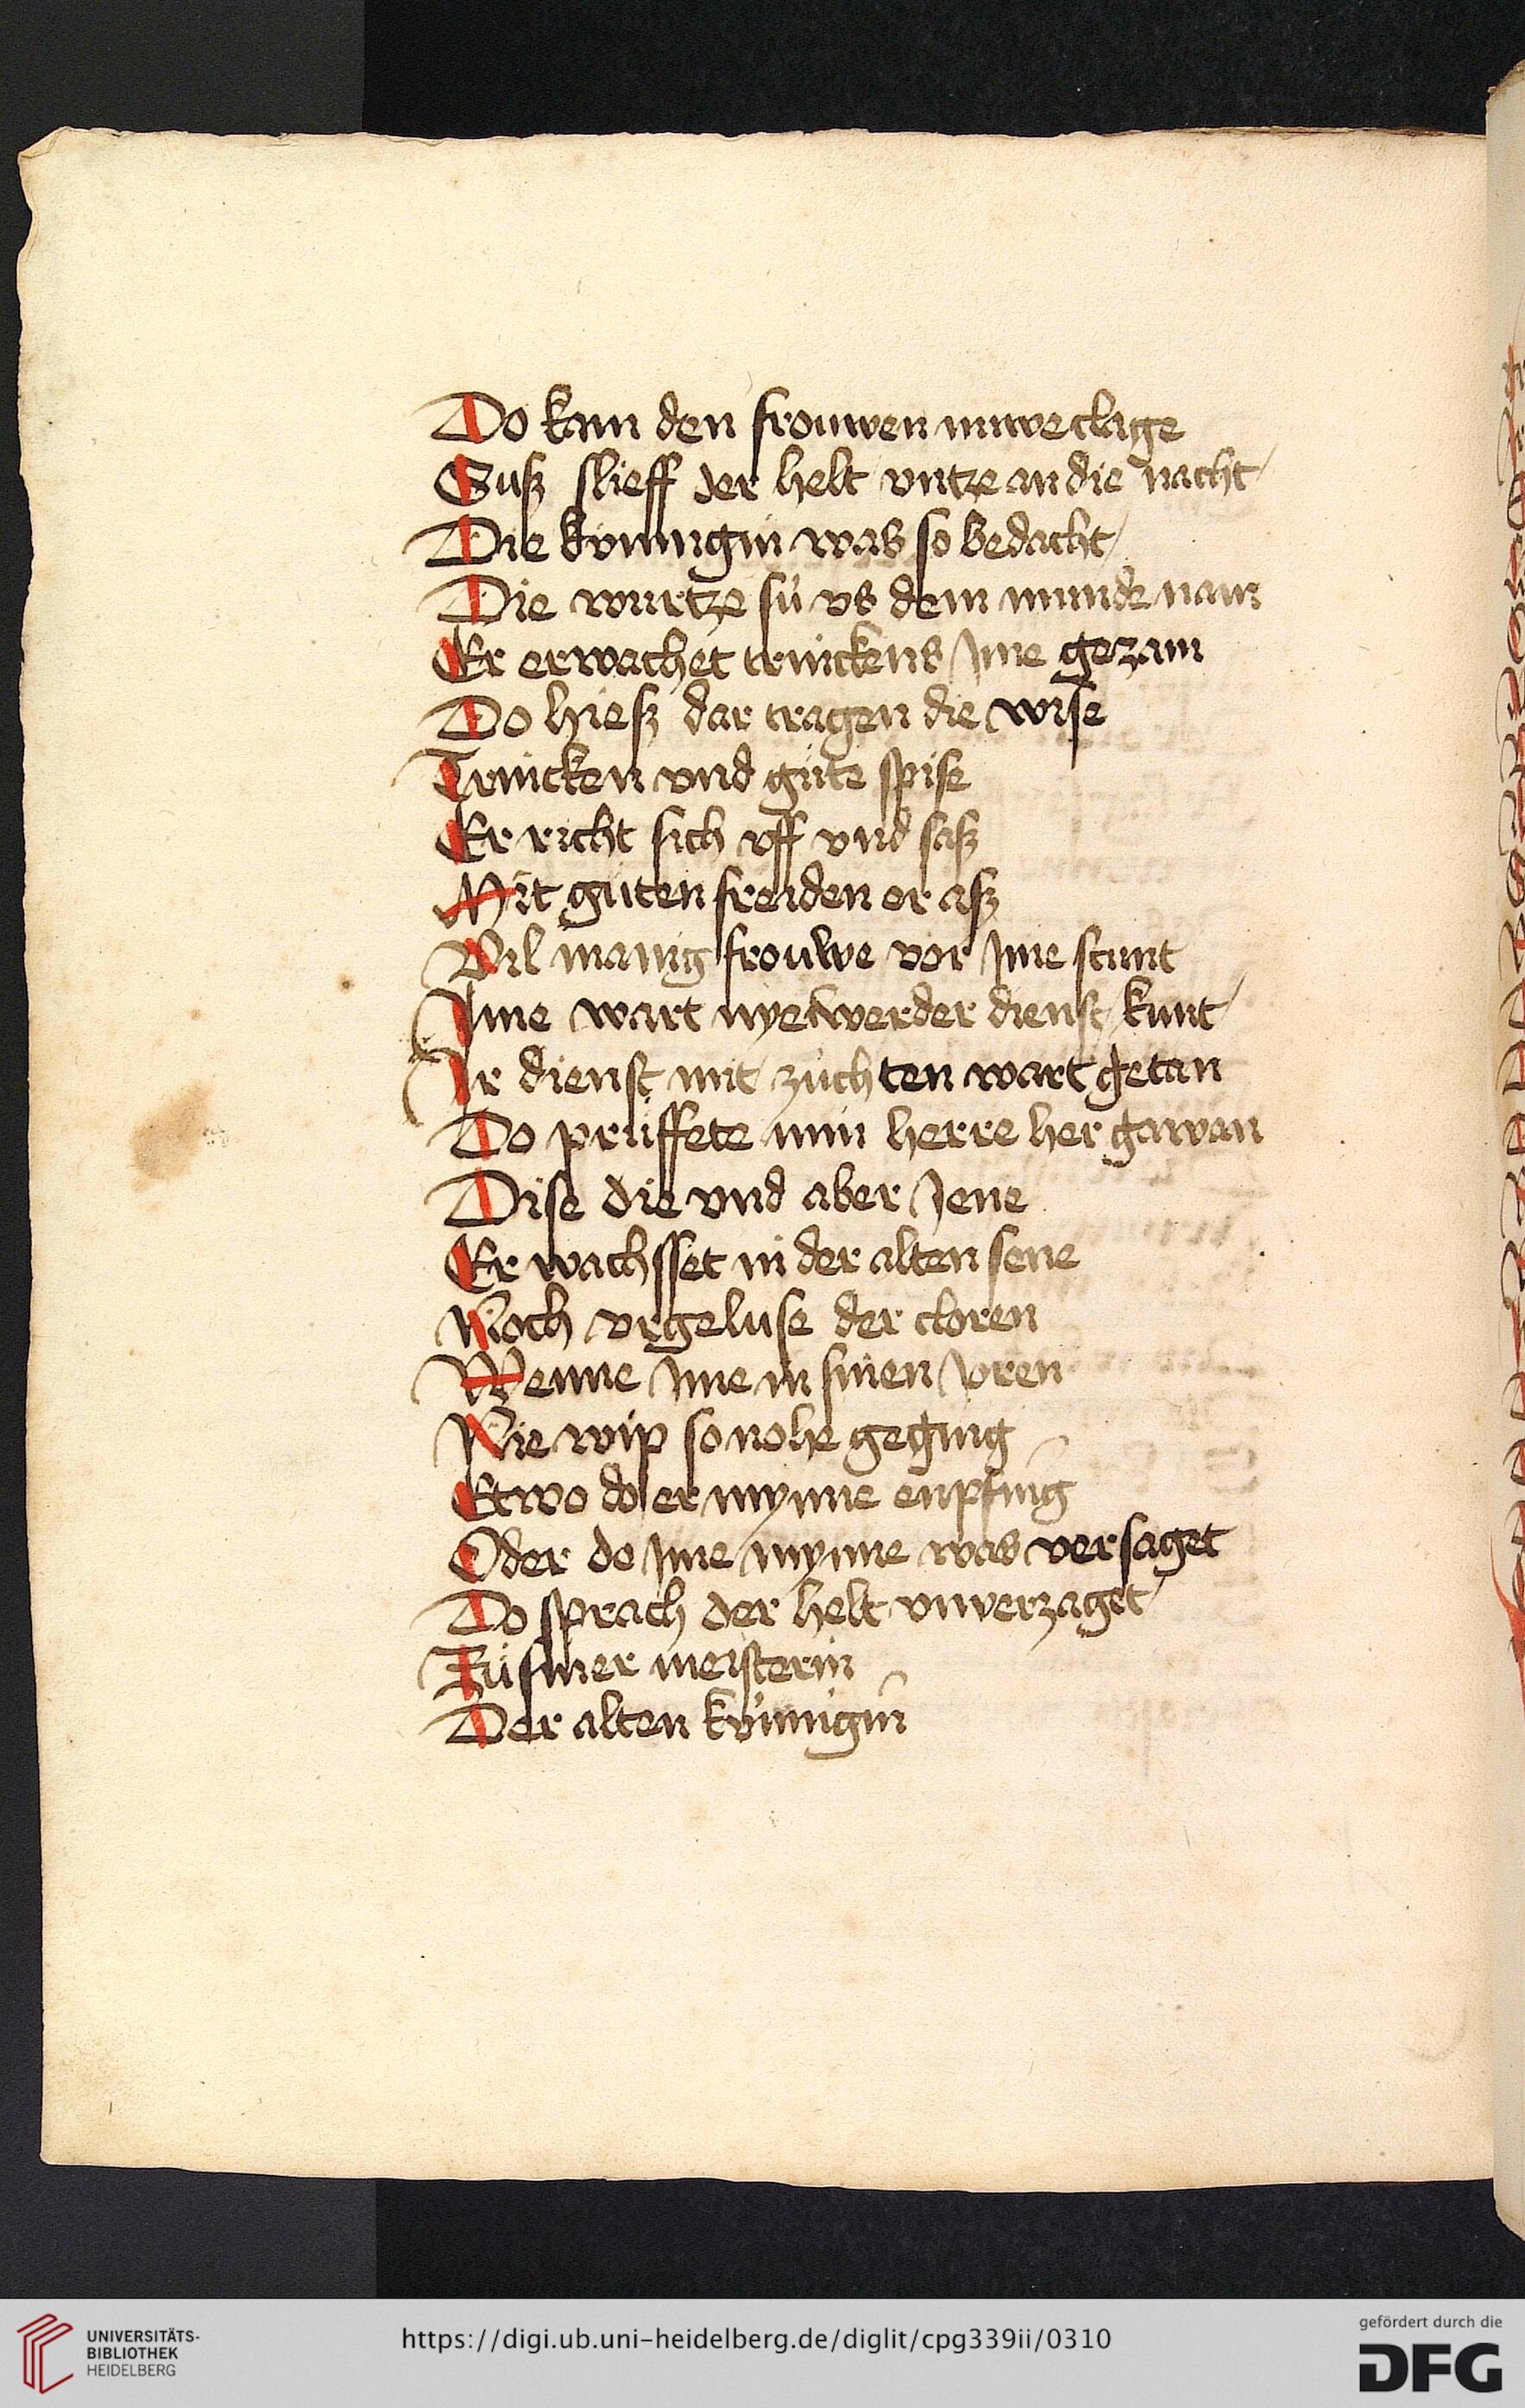 Do kam den frouwen nuwe clage
Susz slieff der helt vntze an die nacht
Die kúnnigin was so bedacht
Die wurtze sú vs dem munde nam
Er erwachet trinckens Jme gezam
Do hiesz dar tragen die wise
Trincken vnd gute spise
Er richt sich vff vnd sasz
Mit guten freiden er asz
Vil manig frouwe vor Jme stunt
Jme wart nye werder dienst kunt
Jr dienst mit zúchten wart getan
Do průffete min herre her gawan
Dise die vnd aber Jene
Er wachsset in der alten sene
Noch vrgeluse der cloren
Wenne Jme in sinen Joren
Nie wip so nohe geging
Etwo do er mynne enpfing
Oder do Jme mynne was versaget
Do sprach der helt vnverzaget
Zů siner meisterin
Der alten kúnnigin
UNIVERSITÄTS-
BIBLIOTHEK
HEIDELBERG
https://digi.ub.uni-heidelberg.de/diglit/cpg339ii/0310
gefördert durch die
DFG